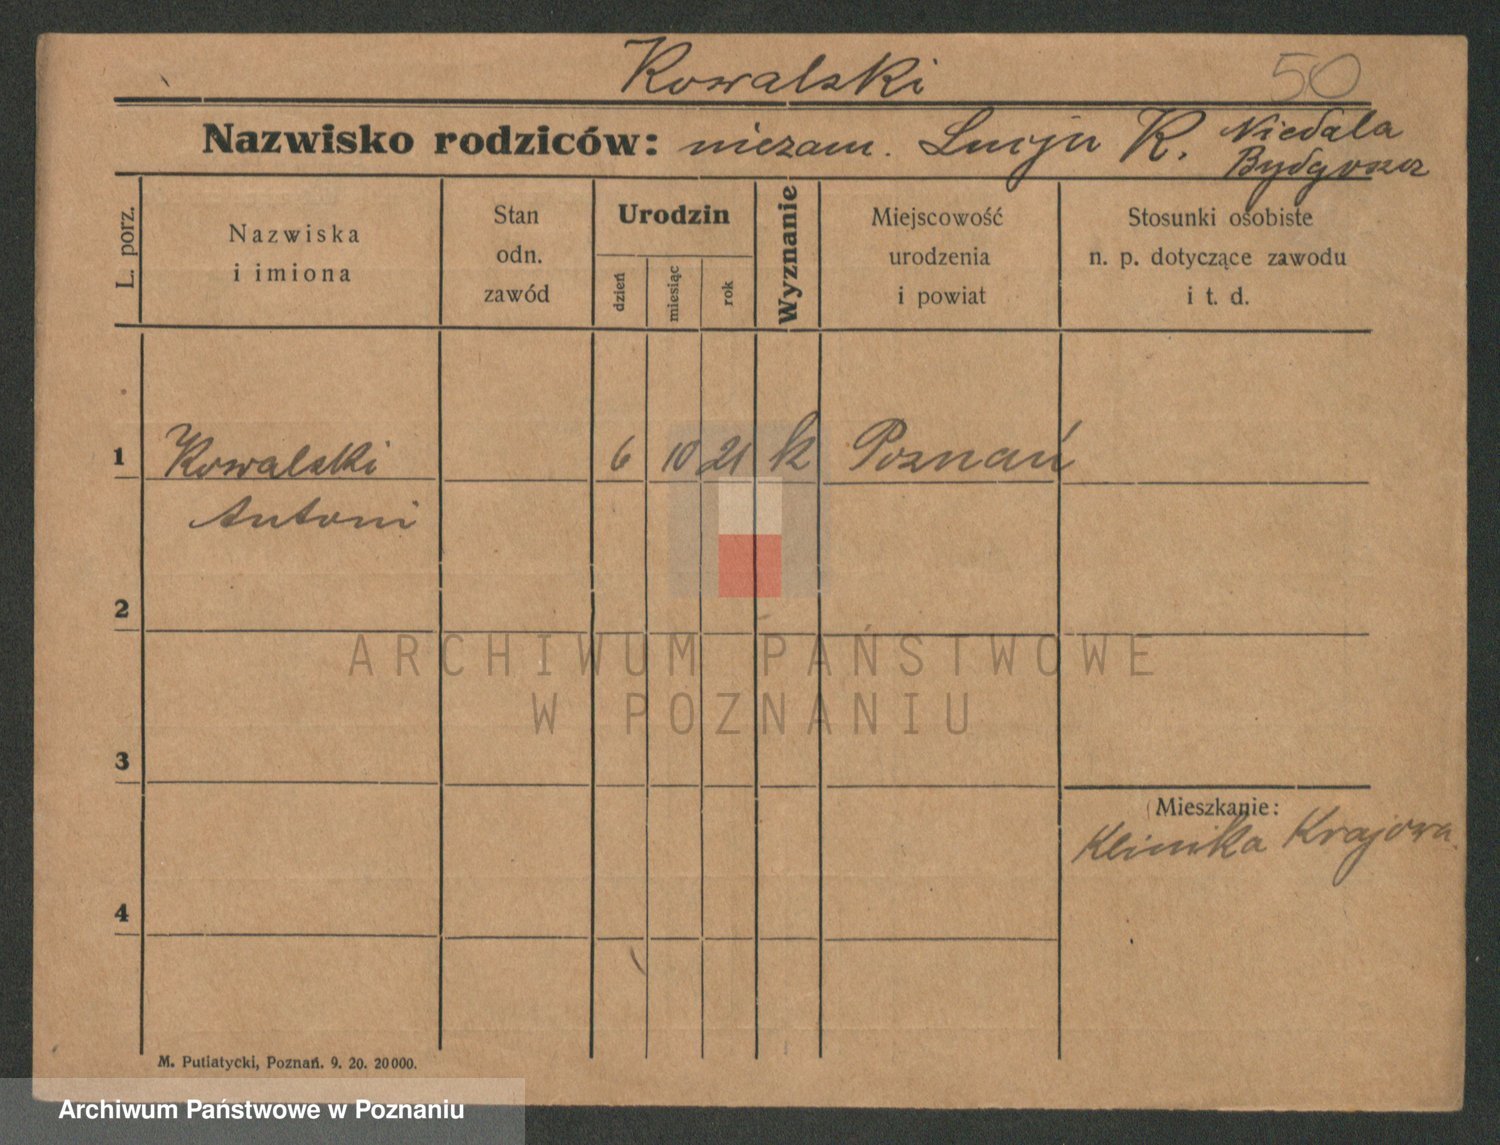 Kowalski 50
Nazwisko rodziców: niezam. Lucja K. Niedala
Bydgoszcz
L. porz.
Nazwiska
i imiona
Stan
odn.
zawód
Urodzin
dzień
miesiąc
rok
Wyznanie
Miejscowość
urodzenia
i powiat
Stosunki osobiste
n. p. dotyczące zawodu
i t. d.
1 Kowalski 6 10 21 k Poznań
Antoni
2
ARCHIWUM PAŃSTWOWE
W POZNANIU
3
Mieszkanie:
Klinika Krajowa
4
M. Putiatycki, Poznań. 9. 20. 20000.
Archiwum Państwowe w Poznaniu